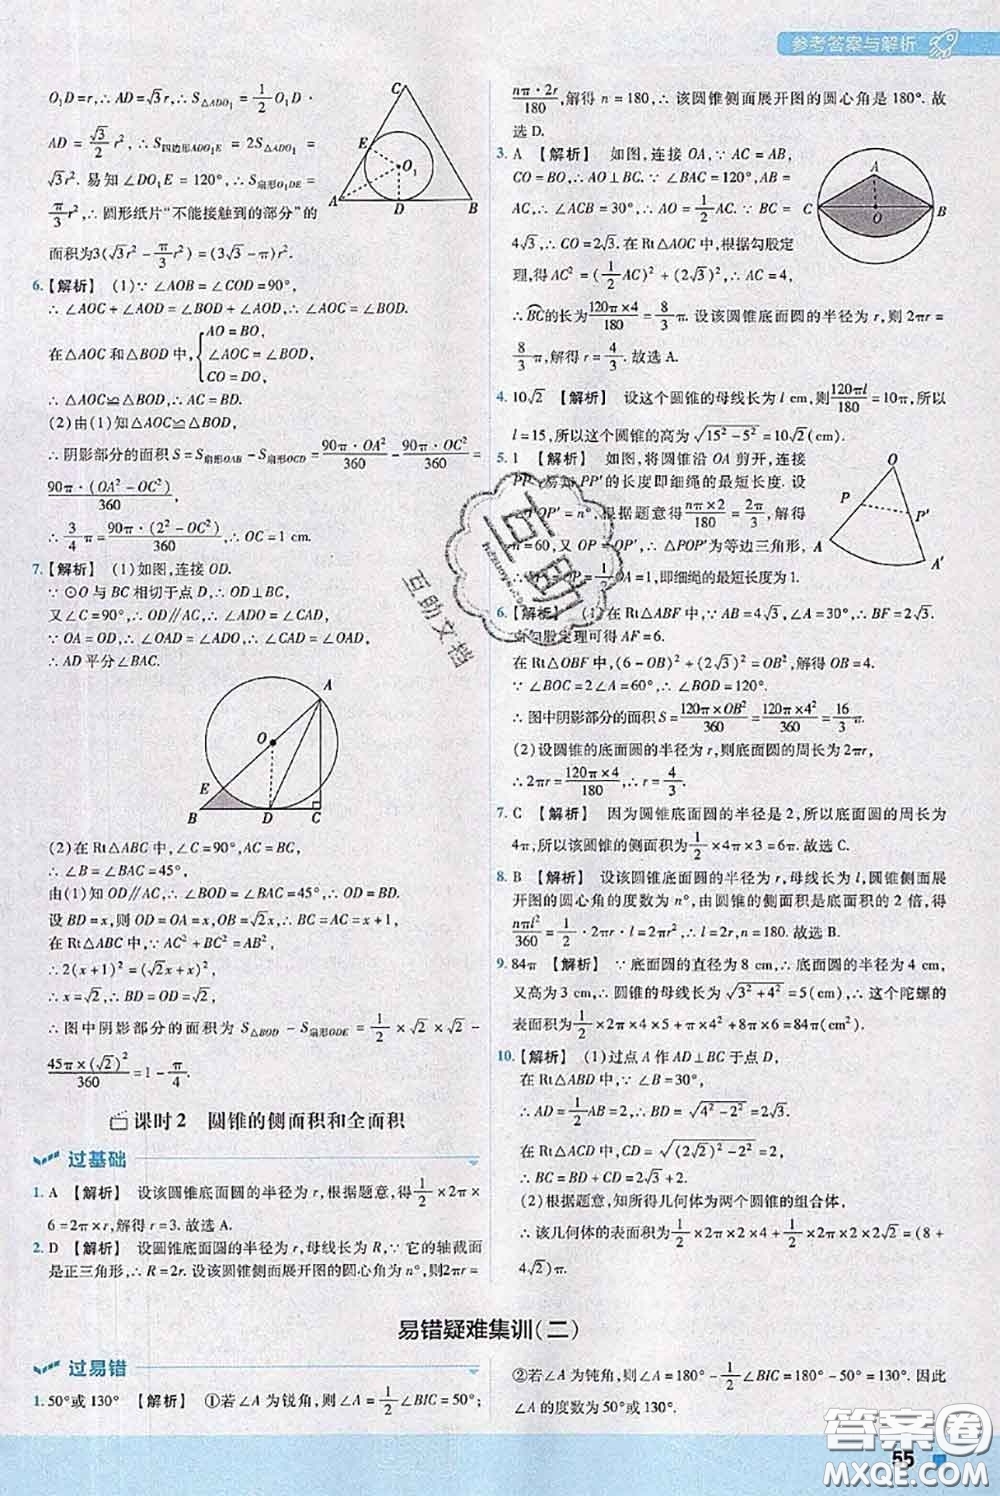 参考答案与解析
O₁D=r,∴AD=√3r,∴S△ADO₁=1/2O₁D·
AD=√3/2r²,∴S四边形ADO₁E=2S△ADO₁=
√3r².易知∠DO₁E=120°,∴S扇形O₁DE=
π/3r²,∴圆形纸片“不能接触到的部分”的
面积为3(√3r²-π/3r²)=(3√3-π)r².
C
E
O₁
A
D
B
6.【解析】 (1)∵∠AOB=∠COD=90°,
∴∠AOC+∠AOD=∠BOD+∠AOD,∴∠AOC=∠BOD.
在△AOC和△BOD中,{AO=BO, ∠AOC=∠BOD, CO=DO,
∴△AOC≌△BOD,∴AC=BD.
(2)由(1)知△AOC≌△BOD,
∴阴影部分的面积S=S扇形OAB-S扇形OCD=90π·OA²/360-90π·OC²/360=
90π·(OA²-OC²)/360,
∴3/4π=90π·(2²-OC²)/360,∴OC=1 cm.
7.【解析】 (1)如图,连接OD.
∵⊙O与BC相切于点D,∴OD⊥BC,
又∠C=90°,∴OD∥AC,∴∠ODA=∠CAD,
∵OA=OD,∴∠OAD=∠ODA,∴∠CAD=∠OAD,
∴AD平分∠BAC.
A
O
E
B
D
C
(2)在Rt△ABC中,∠C=90°,AC=BC,
∴∠B=∠BAC=45°,
由(1)知OD∥AC,∴∠BOD=∠BAC=45°.
设BD=x,则OD=OA=x,OB=√2x,∴BC=AC=x+1,
在Rt△ABC中,∵AC²+BC²=AB²,
∴2(x+1)²=(√2x+x)²,
∴x=√2,∴BD=OD=√2,
∴图中阴影部分的面积为S△BOD-S扇形ODE=1/2×√2×√2-
45π×(√2)²/360=1-π/4.
课时2 圆锥的侧面积和全面积
过基础
1. A 【解析】 设该圆锥底面圆的半径为r,根据题意,得1/2×2π×
6=2πr,解得r=3.故选A.
2. D 【解析】 设圆锥底面圆的半径为r,母线长为R,∵它的轴截面
是正三角形,∴R=2r.设该圆锥侧面展开图的圆心角为n°,则2πr=
nπ·2r/180,解得n=180,∴该圆锥侧面展开图的圆心角是180°.故
选D.
3. A 【解析】 如图,连接OA,∵AC=AB,
CO=BO,∴AO⊥BC.∵∠BAC=120°,AC=
AB,∴∠ACB=30°,∴OA=1/2AC.∵BC=
4√3,∴CO=2√3.在Rt△AOC中,根据勾股定
理,得AC²=(1/2AC)²+(2√3)²,∴AC=4,
∴BC的长为120π×4/180=8/3π.设该圆锥底面圆的半径为r,则2πr=
8/3π,解得r=4/3.故选A.
A
C
O
B
4. 10√2 【解析】 设这个圆锥的母线长为l cm,则120πl/180=10π,所以
l=15,所以这个圆锥的高为√(15²-5²)=10√2(cm).
5. 1 【解析】 如图,将圆锥沿OA剪开,连接
PP′,易知PP′的长度即细绳的最短长度.设
∠POP′=n°,根据题意得nπ×2/180=2π/3,解得
n=60,又OP=OP′,∴△POP′为等边三角形,
PP′=OP=1/2OA=1,即细绳的最短长度为1.
O
P
P′
A
A′
6.【解析】 (1)在Rt△ABF中,∵AB=4√3,∠A=30°,∴BF=2√3.
由勾股定理可得AF=6.
在Rt△OBF中,(6-OB)²+(2√3)²=OB²,解得OB=4.
∵∠BOC=2∠A=60°,∴∠BOD=120°.
∴图中阴影部分的面积S=120π×OB²/360=120π×4²/360=16/3π.
(2)设圆锥的底面圆的半径为r,则底面圆的周长为2πr,
∴2πr=120π×4/180,∴r=4/3.
7. C 【解析】 因为圆锥底面圆的半径是2,所以底面圆的周长为
4π,所以该圆锥的侧面积=1/2×4π×3=6π.故选C.
8. B 【解析】 设该圆锥底面圆的半径为r,母线长为l,圆锥侧面展
开图的圆心角的度数为n°,由圆锥的侧面积是底面积的2倍,得
nπl²/360=1/2·2πr·l=2πr²,∴l=2r,n=180.故选B.
9. 84π 【解析】 ∵底面圆的直径为8 cm,∴底面圆的半径为4 cm,
又高为3 cm,∴圆锥的母线长为√(3²+4²)=5(cm),∴这个陀螺的
表面积为1/2×2π×4×5+π×4²+8π×6=84π(cm²).
10.【解析】 (1)过点A作AD⊥BC于点D,
在Rt△ABD中,∵∠B=30°,
∴AD=1/2AB=1/2×4=2,∴BD=√(4²-2²)=2√3.
在Rt△ACD中,CD=√((2√2)²-2²)=2,
∴BC=BD+CD=2√3+2.
(2)根据题意,知所得几何体为两个圆锥的组合体,
∴该几何体的表面积为1/2×2π×2×4+1/2×2π×2×2√2=(8+
4√2)π.
易错疑难集训(二)
过易错
1. 50°或130° 【解析】 ①若∠A为锐角,则∠A=1/2∠BIC=50°;
②若∠A为钝角,则∠A=180°-1/2∠BIC=180°-50°=130°.因此,
∠A的度数为50°或130°.
55
互助
互助文档
答案圈
MXQE.COM